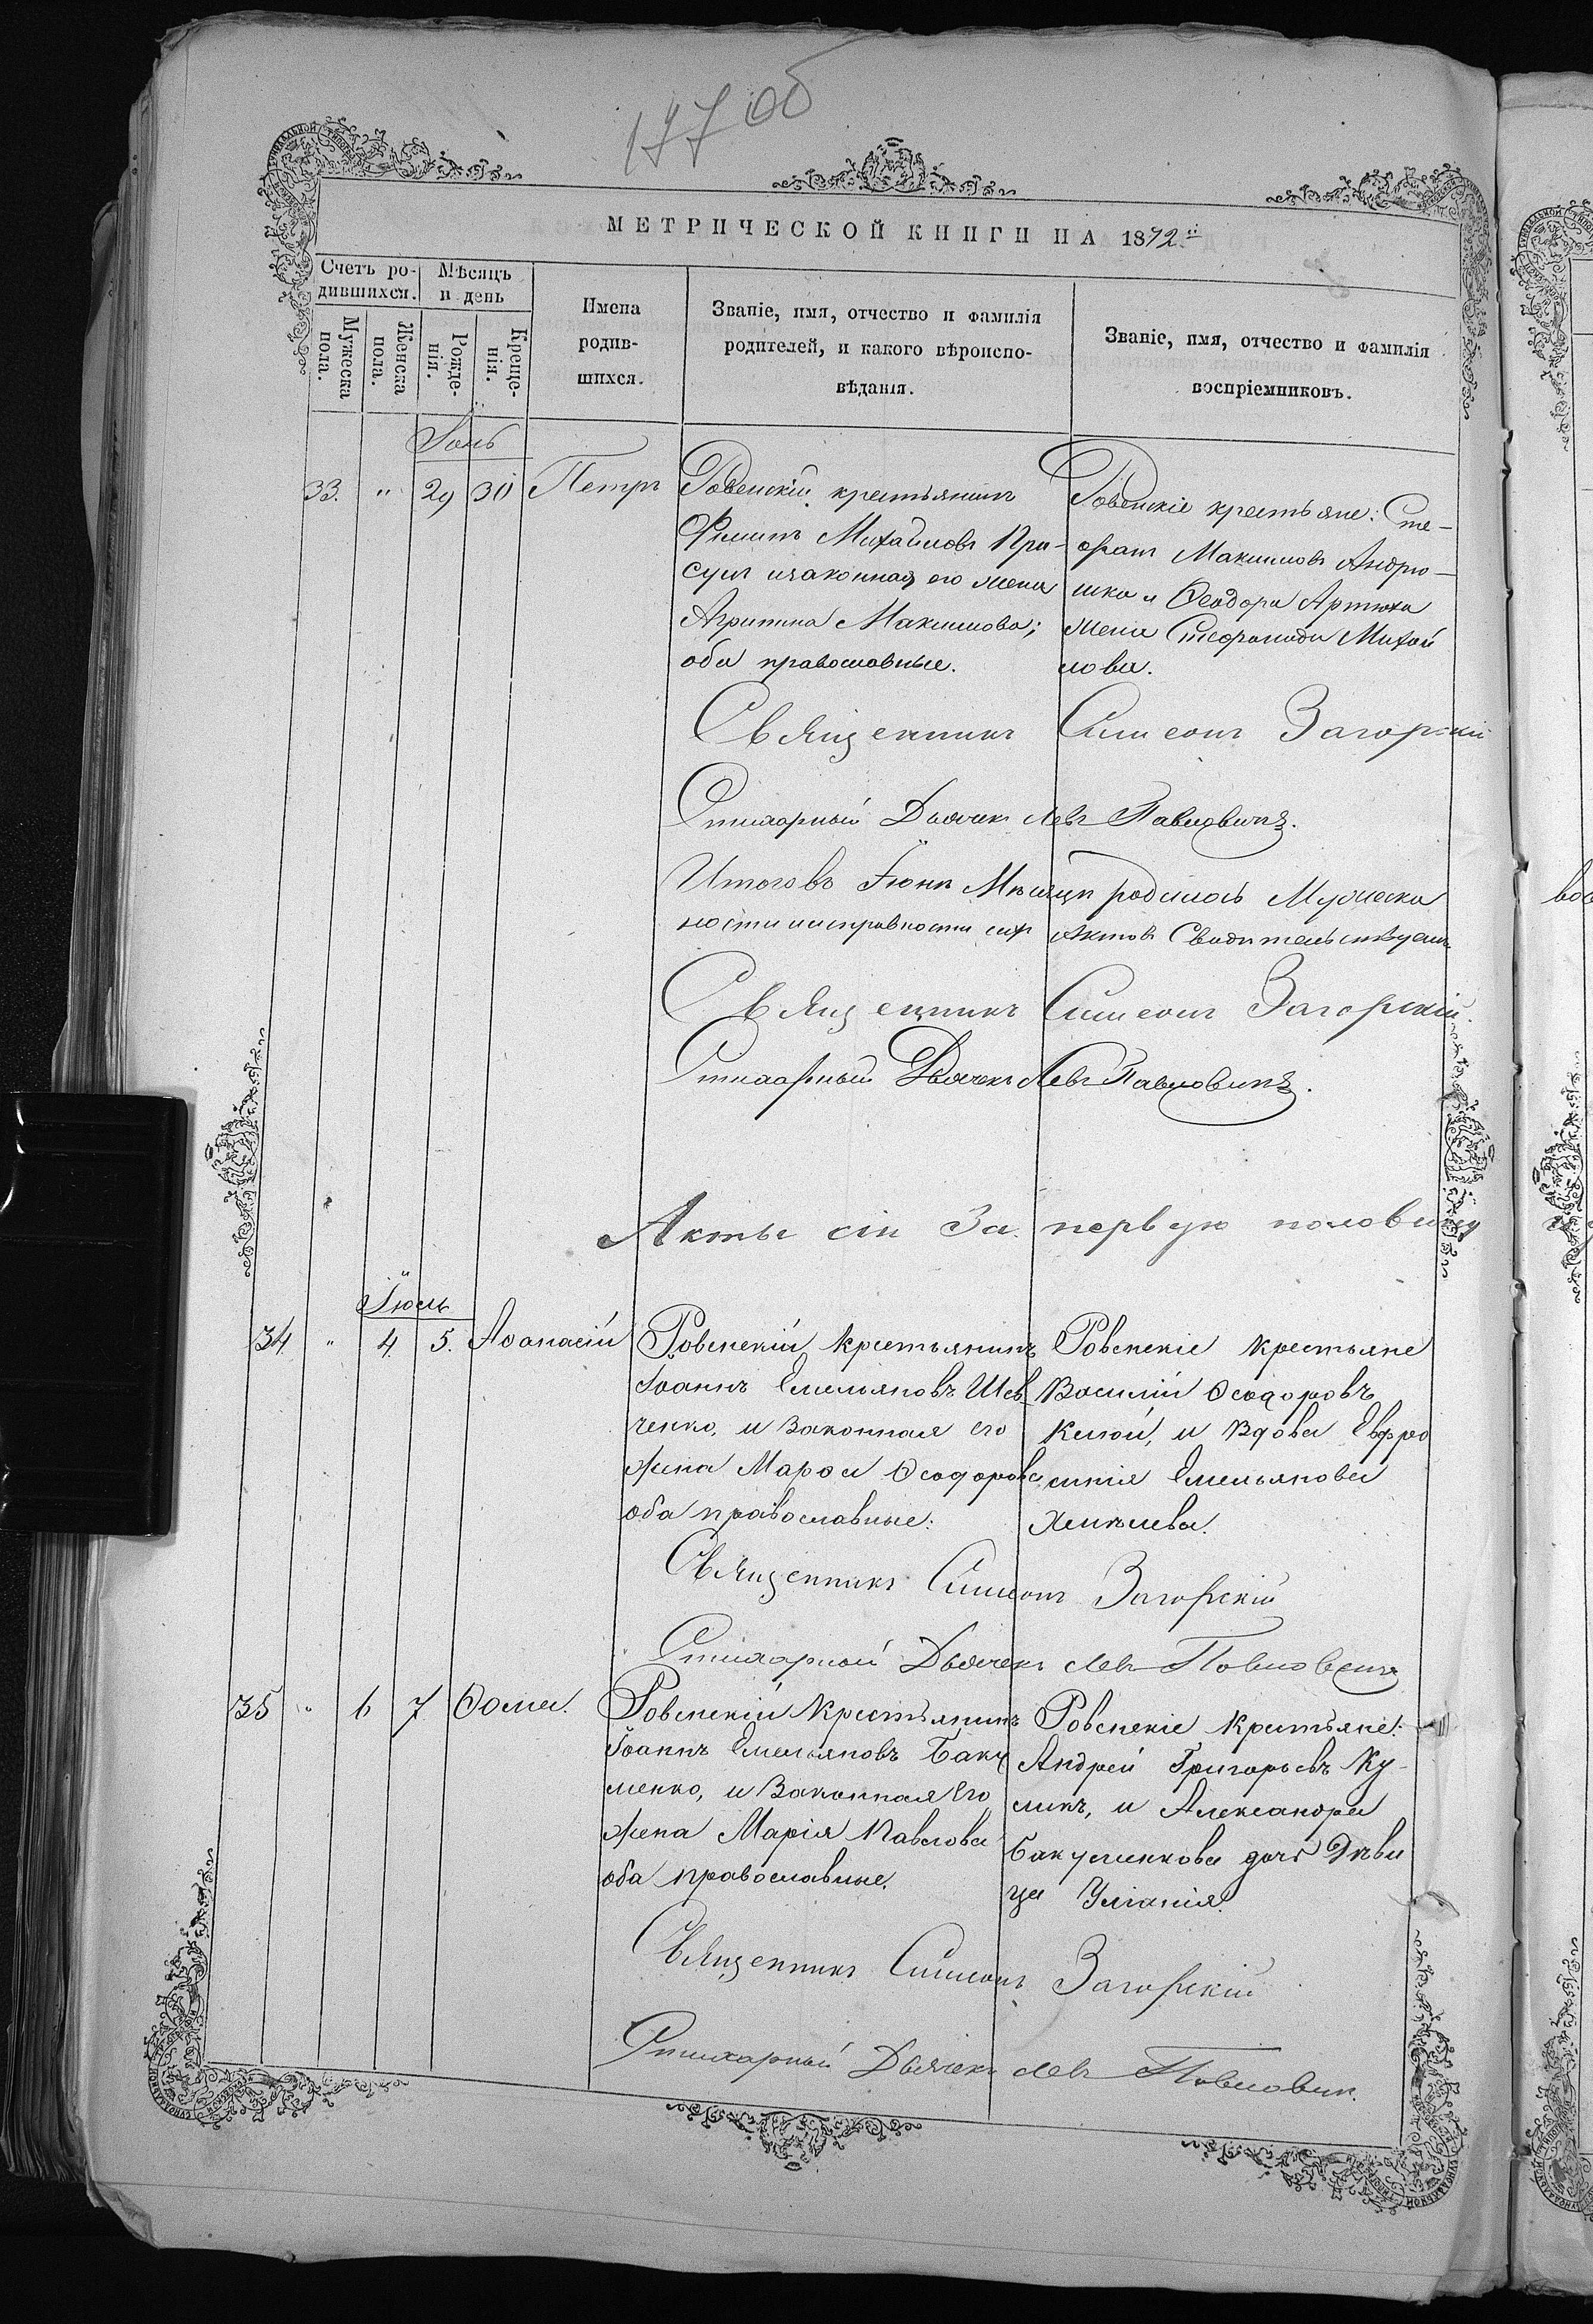 177 об
МЕТРИЧЕСКОЙ КНИГИ НА 1872й
Счетъ ро-
дившихся.
Мѣсяцъ
и день
Мужеска
пола.
Женска
пола.
Рожде-
нія.
Креще-
нія.
Имена
родив-
шихся.
Званіе, имя, отчество и фамилія
родителей, и какого вѣроиспо-
вѣданія.
Званіе, имя, отчество и фамилія
воспріемниковъ.
33. " 29 30 Петръ
Ровенскій крестьянинъ
Филипъ Михайловъ При-
и законная его жена
Агрипина Максимова;
оба православные.
Ровенскіе крестьяне: Сте-
фанъ Максимовъ Андрю-
шко и Ѳеодора Артюха
жена Стефанида Михай
лова.
Священникъ Симеонъ Загорскій
Стихарный Дьячекъ Левъ Павловичъ.
Итого въ Іюнѣ Мѣсяцѣ родилось Мужеска
ности исправности сихъ Актовъ Свидетельствуемъ
Священникъ Симеонъ Загорскій.
Стихарный Дьячекъ Левъ Павловичъ.
Акты сіи За первую половину
Іюль
34 " 4 5. Аѳанасій
Ровенскій крестьянинъ
Іоаннъ Емельяновъ Шев-
ченко, и Законная его
жена Марѳа Ѳеодорова
оба православные:
Ровенскіе крестьяне
Василій Ѳеодоровъ
и Вдова Евфро
синія Емельянова
Священникъ Симеонъ Загорскій
Стихарный Дьячекъ Левъ Павловичъ
35 " 6 7 Ѳома.
Ровенскій Крестьянинъ
Іоаннъ Емельяновъ Баку
менко, и Законная Его
жена Марія Павлова
оба православные.
Ровенскіе Крестьяне:
Андрей Григорьевъ Ку-
ликъ, и Александра
Бакуменкова дочь Дѣви
ца Уліанія.
Священникъ Симеонъ Загорскій
Стихарный Дьячекъ Левъ Павловичъ.